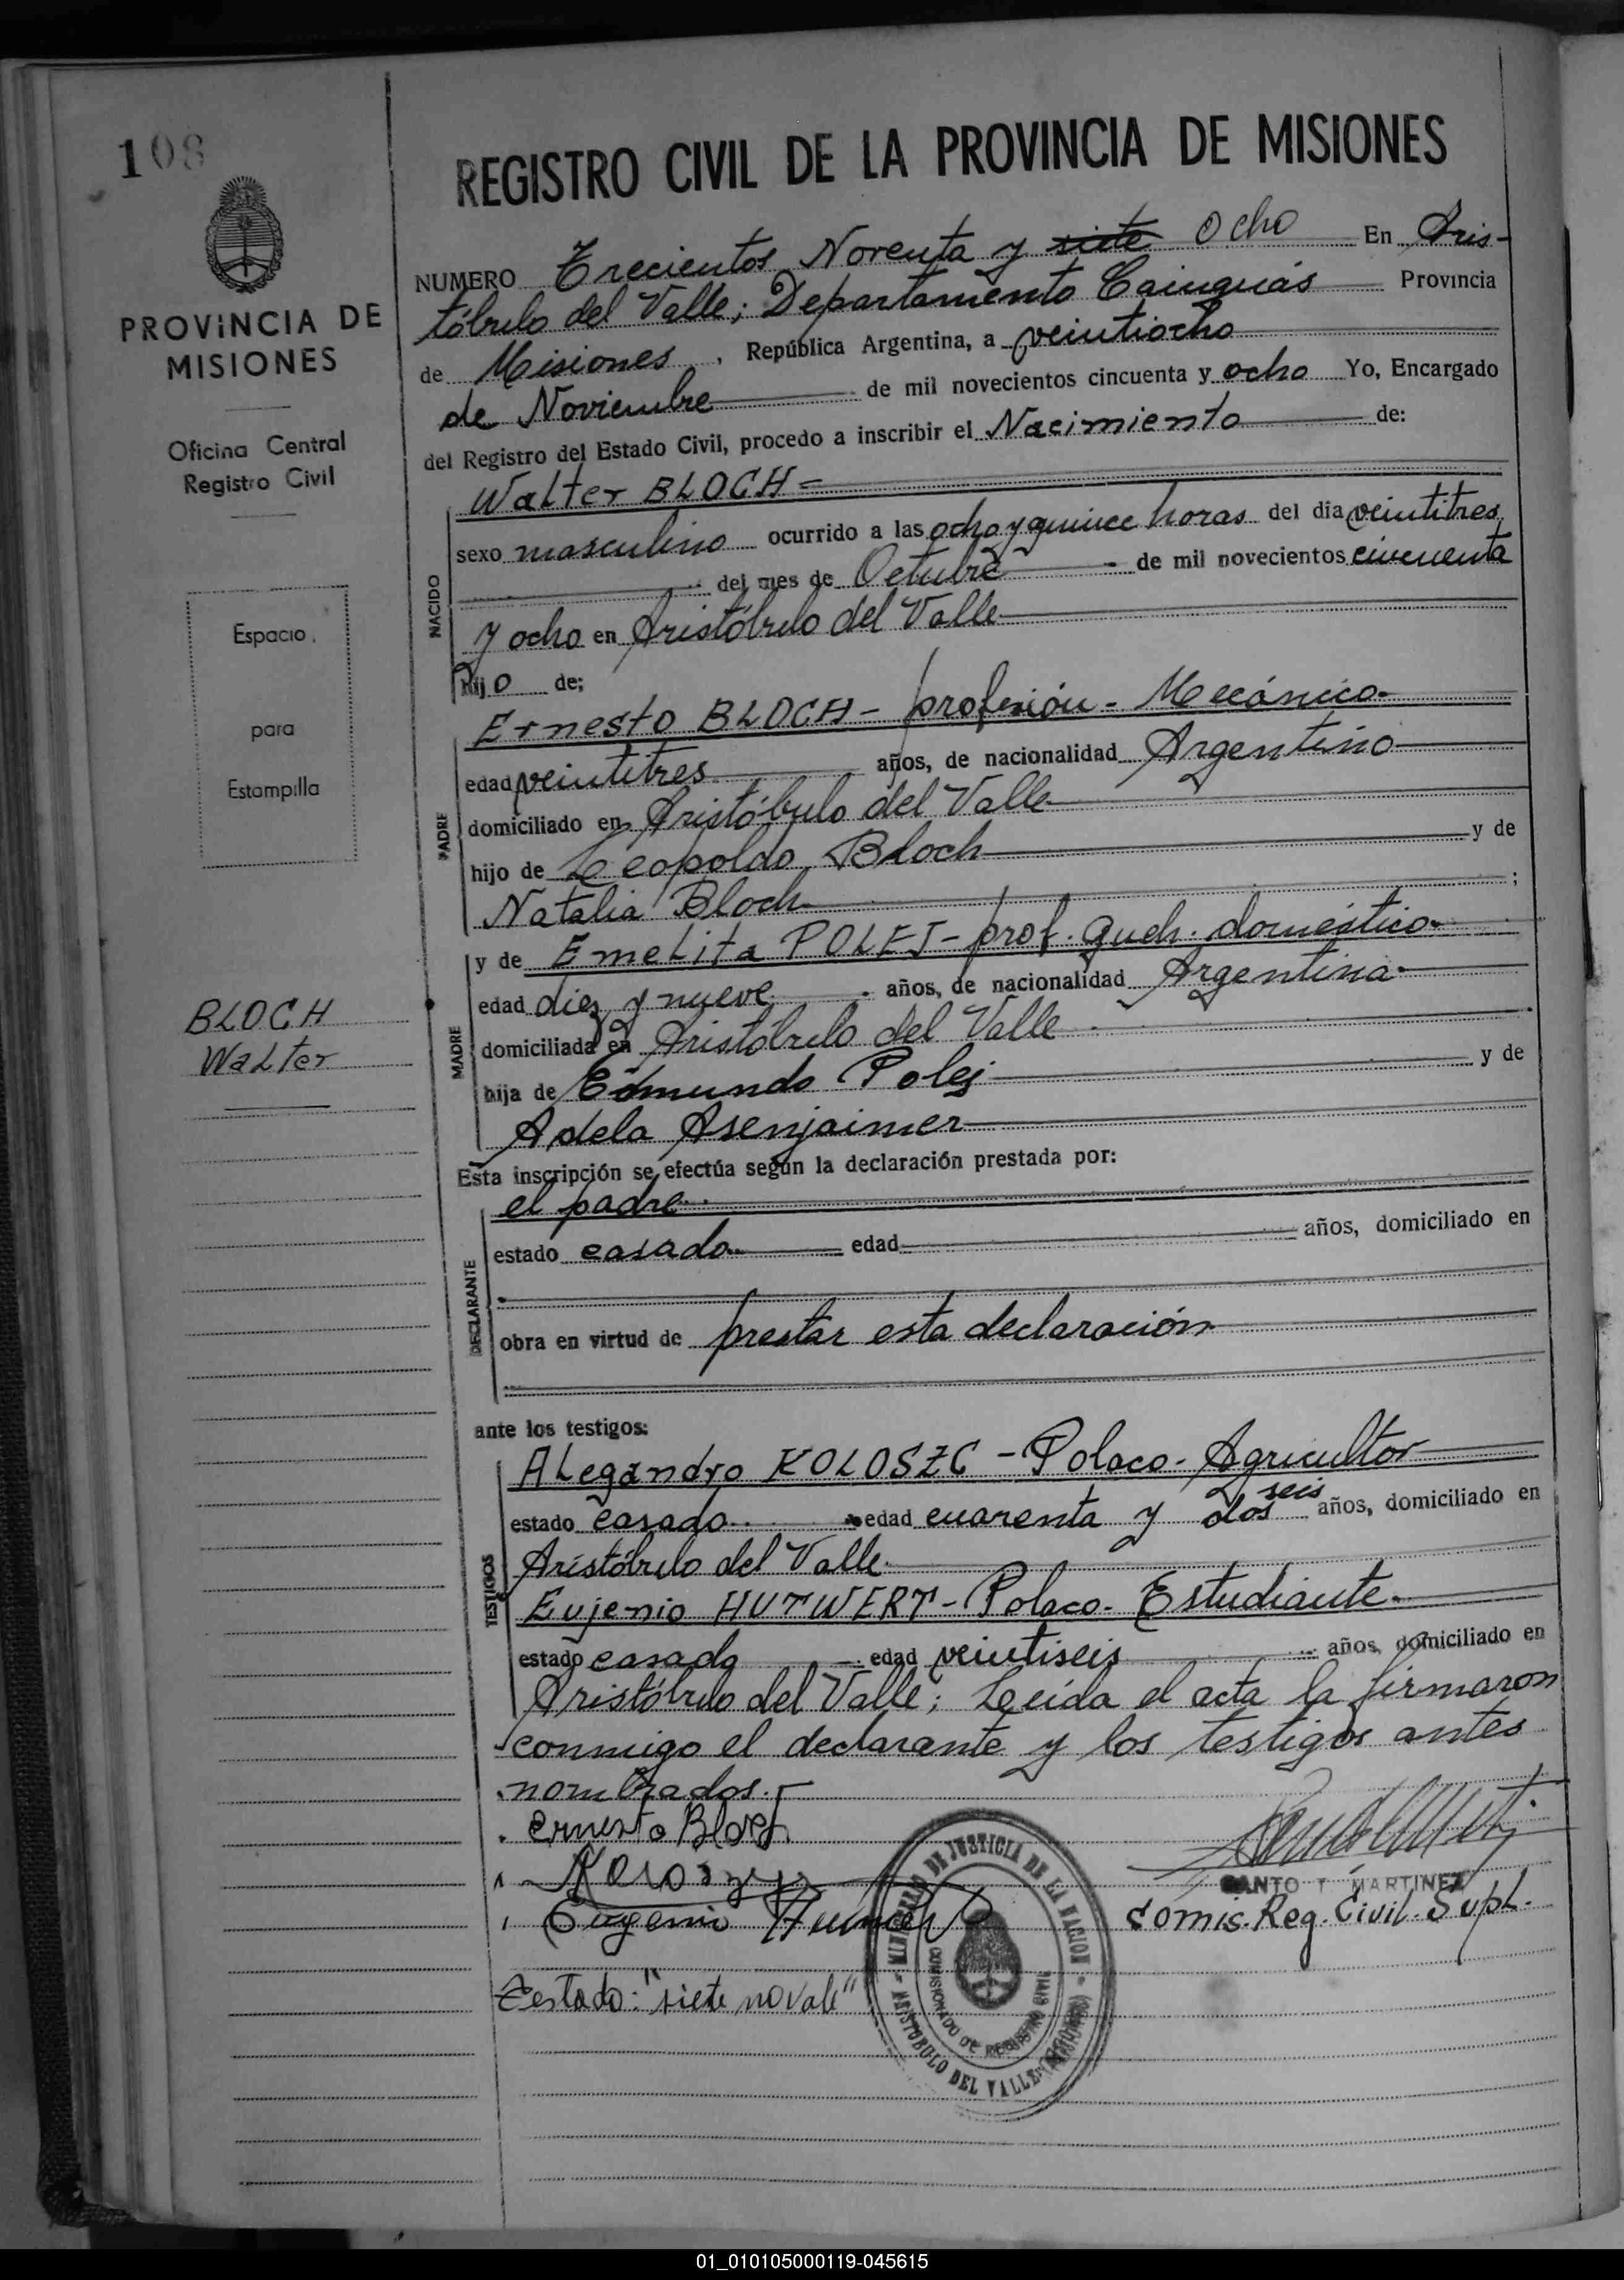 108
PROVINCIA DE
MISIONES
Oficina Central
Registro Civil
Espacio
para
Estampilla
BLOCH
Walter
REGISTRO CIVIL DE LA PROVINCIA DE MISIONES
NUMERO Trecientos Noventa y siete Ocho En Aris-
tóbulo del Valle; Departamento Cainguás Provincia
de Misiones, República Argentina, a veintiocho
de Noviembre de mil novecientos cincuenta y ocho Yo, Encargado
del Registro del Estado Civil, procedo a inscribir el Nacimiento de:
NACIDO
Walter BLOCH=
sexo masculino ocurrido a las ocho y quince horas del dia veintitres
del mes de Octubre de mil novecientos cincuenta
y ocho en Aristóbulo del Valle
hijo de;
PADRE
Ernesto BLOCH- profesión- Mecánico-
edad veintitres años, de nacionalidad Argentino
domiciliado en Aristóbulo del Valle
hijo de Leopoldo Bloch y de
Natalia Bloch ;
MADRE
y de Emelita POLEJ- prof. queh. doméstico-
edad diez y nueve años, de nacionalidad Argentina
domiciliada en Aristóbulo del Valle
hija de Edmundo Polej y de
Adela Asenjaimer
Esta inscripción se efectúa según la declaración prestada por:
DECLARANTE
el padre
estado casado edad años, domiciliado en
obra en virtud de prestar esta declaración
ante los testigos:
TESTIGOS
ALegandro KOLOSZC - Polaco- Agricultor
estado casado edad cuarenta y dos seis años, domiciliado en
Aristóbulo del Valle
Eujenio HUTWERT- Polaco- Estudiante-
estado casado edad veintiseis años, domiciliado en
Aristóbulo del Valle; Leida el acta la firmaron
conmigo el declarante y los testigos antes
nombrados.
Ernesto Bloch
Eugenio
SANTO T. MARTINEZ
Comis. Reg. Civil. Supl.
MINISTERIO DE JUSTICIA DE LA NACION
COMISIONADO DE REGISTRO CIVIL
ARISTOBULO DEL VALLE (MISIONES)
Testado: "siete no vale"
01_010105000119-045615